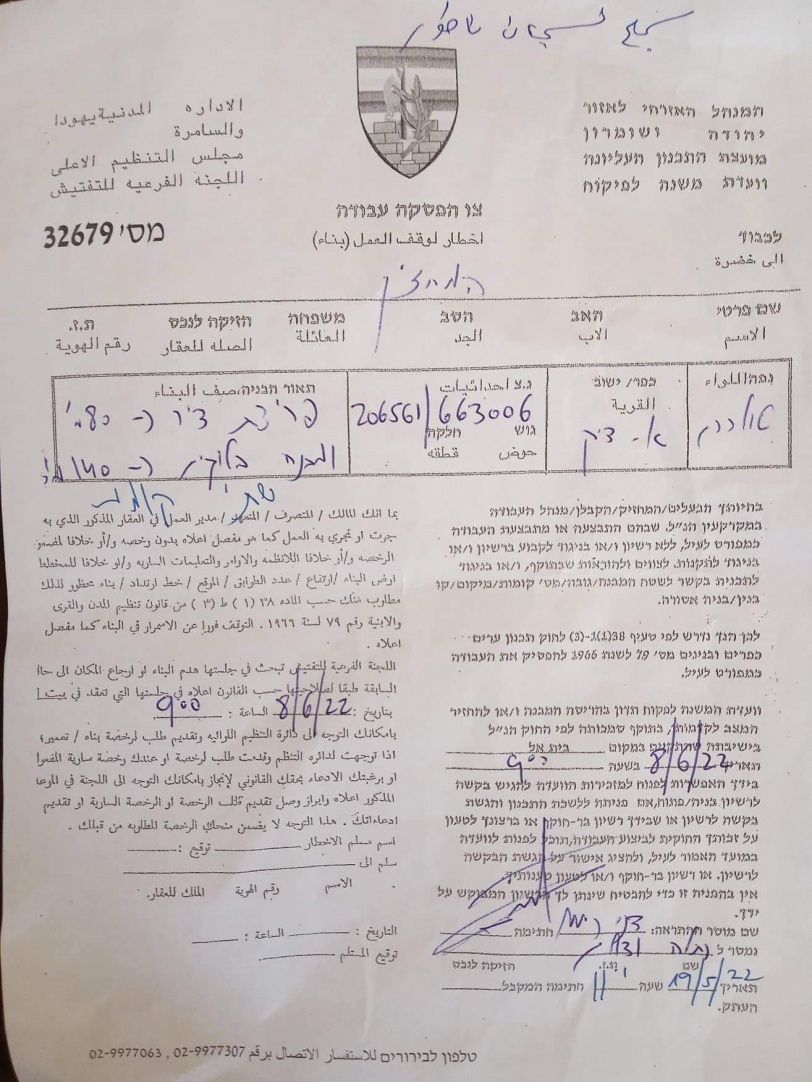 המנהל האזרחי לאזור
יהודה ושומרון
מועצת התכנון העליונה
וועדת משנה לפיקוח
الاداره المدنية يهودا
والسامرة
مجلس التنظيم الاعلى
اللجنه الفرعيه للتفتيش
צו הפסקה עבודה
اخطار لوقف العمل (بناء)
מס׳ 32679
לכבוד
الى حضرة
המחזיק
שם פרטי האב הסב משפחה חזיקה לנכס ת.ז.
الاسم الاب الجد العائلة الصله للعقار رقم الهوية
נפה اللواء
כפר/ ישוב القرية
נ.צ احداثيات
206561/663006
גוש חלקה
حوض قطقه
תאור הבניה صيف البناء
פריצת דרך כ-
בהיותך הבעלים/המחזיק/הקבלן/מנהל העבודה
במקרקעין הנ״ל, שבהם התבצעה או מתבצעת העבודה
כמפורט לעיל, ללא רשיון ו/או בניגוד לקבוע ברשיון ו/או
בניגוד לתקנות, לצווים ולהוראות שבתוקף, ו/או בניגוד
לתכנית בקשר לשטח המבנה/גובה/מס׳ קומות/מיקום/קו
בנין/בניה אסורה.
לכן הנך נדרש לפי סעיף 38(1)(ט-3) לחוק תכנון ערים
כפרים ובנינים מס׳ 79 לשנת 1966 להפסיק את העבודה
כמפורט לעיל.
וועדת המשנה לפקוח תדון בהריסת המבנה ו/או להחזיר
המצב לקדמותו, בתוקף סמכותה לפי החוק הנ״ל
בישיבתה שתתקיים במקום בית אל
תאריך 8/6/22 בשעה 9:00
בידך האפשרות לפנות למזכירות הוועדה להגיש בקשה
לרשיון בניה/פתוח, אם פניתה ללשכת התכנון והגשת
בקשה לרשיון או שבידך רשיון בר-תוקף או ברצונך לטעון
על זכותך החוקית לביצוע העבודה, תוכל לפנות לוועדה
במועד האמור לעיל, ולהציג אישור על הגשת הבקשה
לרשיון. או רשיון בר-תוקף ו/או לטעון טענותיך.
אין בהפניה זו כדי להבטיח שינתן לך הרשיון המבוקש על
ידך.
שם מוסר ההתראה: חתימה
נמסר ל
שם ת.ז. חזיקה לנכס
תאריך 19/5/22 שעה 11 חתימה המקבל
העתק.
بما انك المالك / المتصرف / المتعهد / مدير العمل في العقار المذكور الذي به
جرت او تجري به العمل كما هو مفصل اعلاه بدون رخصه و/أو خلافا لمضمو
الرخصه و/أو خلافا اللائظمه والاوامر والتعليمات الساريه و/او خلافا للمخطط
ارض البناء /ارتفاع / عدد الطوابق / الموقع / خط ارتداد / بناء محظور لذلك
مطلوب منك حسب الماده ٣٨ (١) ط (٣) من قانون تنظيم المدن والقرى
والابنية رقم ٧٩ لسنة ١٩٦٦ . التوقف فورا عن الاسمرار في البناء كما مفصل
اعلاه .
اللجنة الفرعية للتفتيش تبحث في جلستها هدم البناء او ارجاع المكان الى حاا
السابقة طبقا لصلاحيتها حسب القانون اعلاه في جلستها التي تعقد في بيت ا
بتاريخ : 8/6/22 الساعة : 9:00
بامكانك التوجه الى دائرة التنظيم اللوائيه وتقديم طلب لرخصة بناء / تعمير؛
اذا توجهت لدائره التنظم وقدمت طلب لرخصة او عندك رخصة سارية المفعوا
او برغبتك الادعاء بحقك القانوني لإنجاز بامكانك التوجه الى اللجنة في الموعا
المذكور اعلاه وابراز وصل تقديم طلب الرخصة او الرخصة السارية او تقديم
ادعاءاتك . هذا التوجه لا يضمن منحك الرخصة المطلوبه من قبلك .
اسم مسلم الاخطار توقيع :
سلم الى
الاسم رقم الهوية الملك للعقار.
التاريخ : الساعة :
توقيع المستلم
טלפון לבירורים للاستفسار الاتصال برقم 02-9977307 , 02-9977063